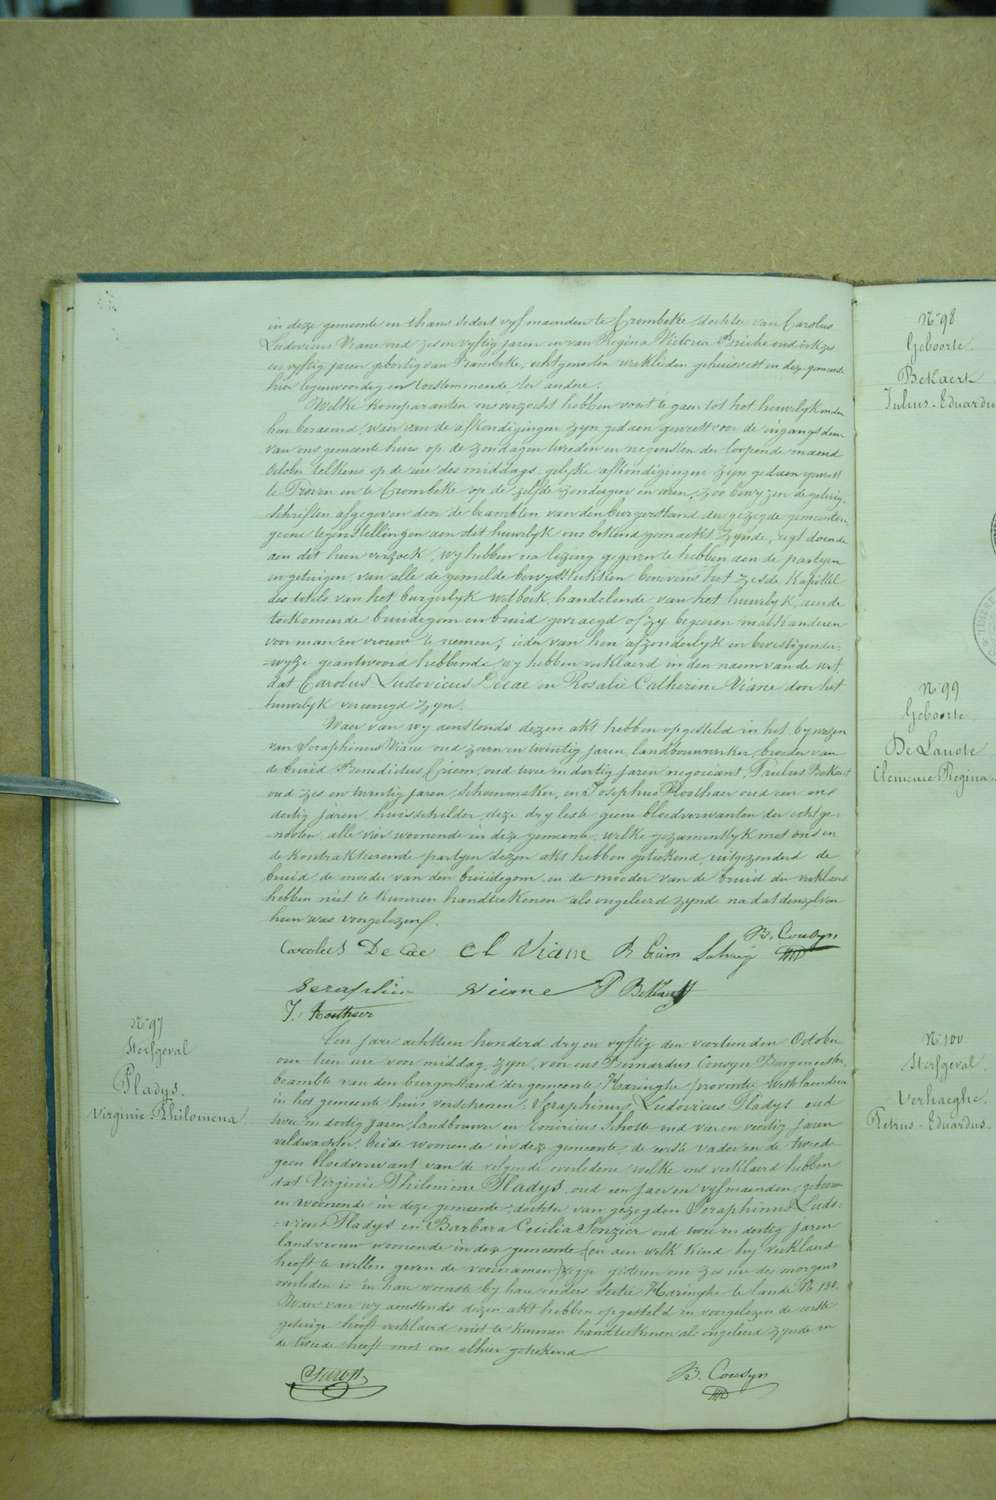 in deze gemeente en thans sedert vyf maenden te Crombeke dochter van Carolus
Ludovicus Viane oud zes en vyftig jaren en van Regina Victoria
en vyftig jaren geboortig van Crombeke, echtgenoten werklieden gehuisvest in deze gemeente
hier tegenwoordig en toestemmende ter andere.
Welke komparanten ons verzocht hebben voort te gaen tot het huwelyk onder
hen beraemd, waer van de afkondigingen zyn gedaen geweest voor de ingangsdeur
van ons gemeente huis op de zondagen tweeden en negensten der loopende maend
October telkens op de ure des middags, gelyke afkondigingen zyn gedaen geweest
te Proven en te Crombeke op de zelfde zondagen en uren, zoo bewyzen de getuig-
schriften afgegeven door de beambten van den burgerstand der gezegde gemeenten,
geene tegenstellingen aen dit huwelyk ons bekend gemaekt zynde, regt doende
aen dit hun verzoek, wy hebben na lezing gegeven te hebben aen de partyen
en getuigen, van alle de gemelde bewysstukken benevens het zesde kapittel
des titels van het burgerlyk wetboek, handelende van het huwelyk, aen de
toekomende bruidegom en bruid gevraegd of zy begeren malkanderen
voor man en vrouw te nemen; ieder van hen afzonderlyk en bevestigender-
wyze geantwoord hebbende, wy hebben verklaerd in den naem van de wet,
dat Carolus Ludovicus Decae en Rosalie Catherine Viane door het
huwelyk vereenigd zyn.
Waer van wy aenstonds dezen akt hebben opgesteld in het bywezen
van Seraphinus Viane oud zeven en twintig jaren, landbouwwerker, broeder van
de bruid Benedictus Criem, oud twee en dertig jaren negociant, Paulus Bekaert
oud zes en twintig jaren, schoenmaker, en Josephus Roothaer oud een en
dertig jaren, huisschilder, deze dry leste geene bloedverwanten der echtge-
-nooten, alle vier woonende in deze gemeente, welke gezamentlyk met ons en
de kontrakterende partyen dezen akt hebben geteekend, uitgezonderd de
bruid de moeder van den bruidegom en de moeder van de bruid die verklaerd
hebben niet te kunnen handteekenen als ongeleerd zynde na dat dezelven
hun was voorgelezen.
Carolus De Cae cl Viane B Criem B. Cousyn
Seraphin Viane P Bekaert
J. Roothaer
N° 97
Sterfgeval
Pladys.
Virginie Philomena
Ten jare achttien honderd dry en vyftig den veertienden October
om tien ure voor middag, zyn, voor ons Bernardus Cousyn Borgemeester
beambte van den burgerstand der gemeente Haringhe provintie Westvlaenderen
in het gemeente huis verschenen: Seraphinus Ludovicus Pladys oud
twee en dertig jaren, landbouwer en Schotte oud vier en veertig jaren
veldwachter, beide woonende in deze gemeente, de eerste vader en de tweede
geen bloedverwant van de volgende overledene welke ons verklaerd hebben
dat Virginie Philomene Pladys, oud een jaer en vyf maenden, geboren
en woonende in deze gemeente, dochter van gezegden Seraphinus Ludo-
-vicus Pladys en Barbara Cecilia oud twee en dertig jaren
landvrouw woonende in deze gemeente (en aen welk kind hy verklaerd
heeft te willen geven de voornamen) gisteren om zes ure des morgens
overleden is in haer woonste by haer ouders sectie Haringhe te lande N°
Waer van wy aenstonds dezen akt hebben opgesteld en voorgelezen de eerste
getuige heeft verklaerd niet te kunnen handteekenen als ongeleerd zynde en
de tweede heeft met ons alhier geteekend
B. Cousyn
N° 98
Geboorte.
Bekaert
Julius-Eduardu
N° 99
Geboorte
De Lanote
Clemence Regina
N° 100
Sterfgeval.
Verhaeghe.
Petrus-Eduardus.